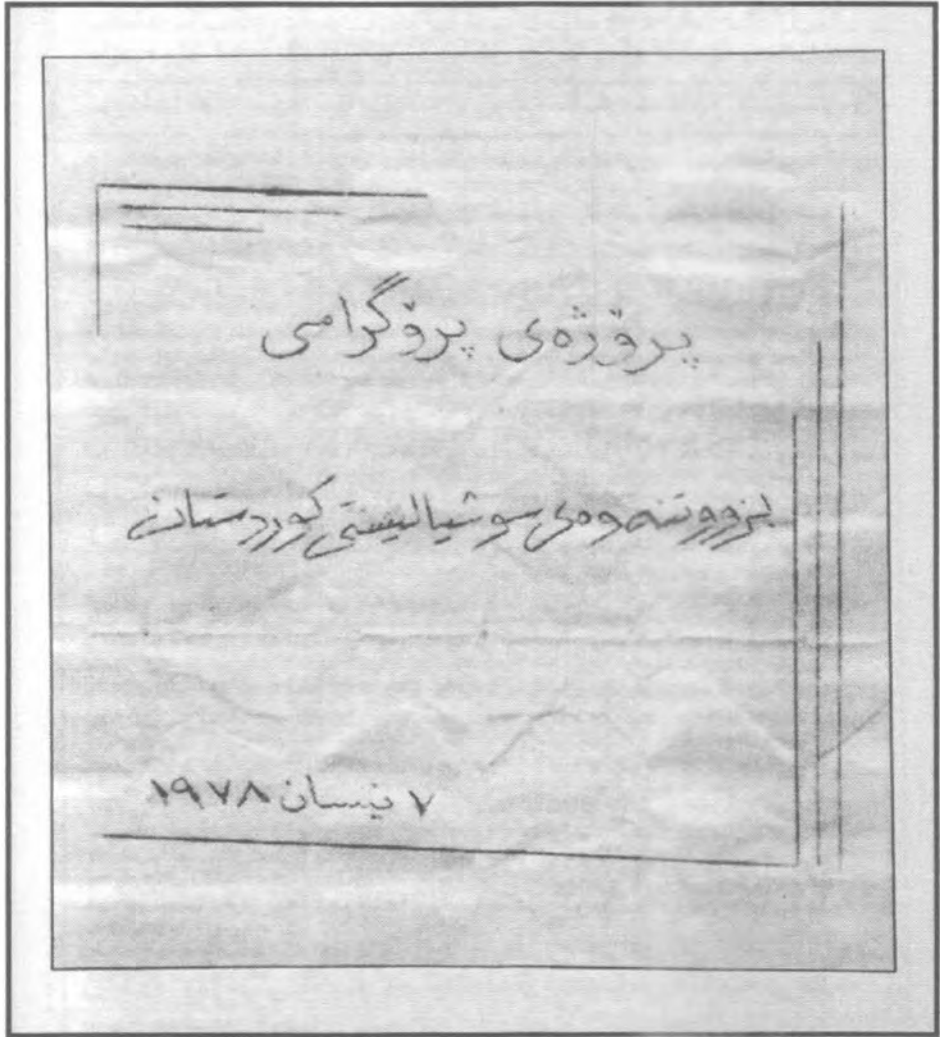 پرۆژەی پرۆگرامی
بزووتنەوەی سوشیالیستی کوردستان
٧ نیسان ١٩٧٨